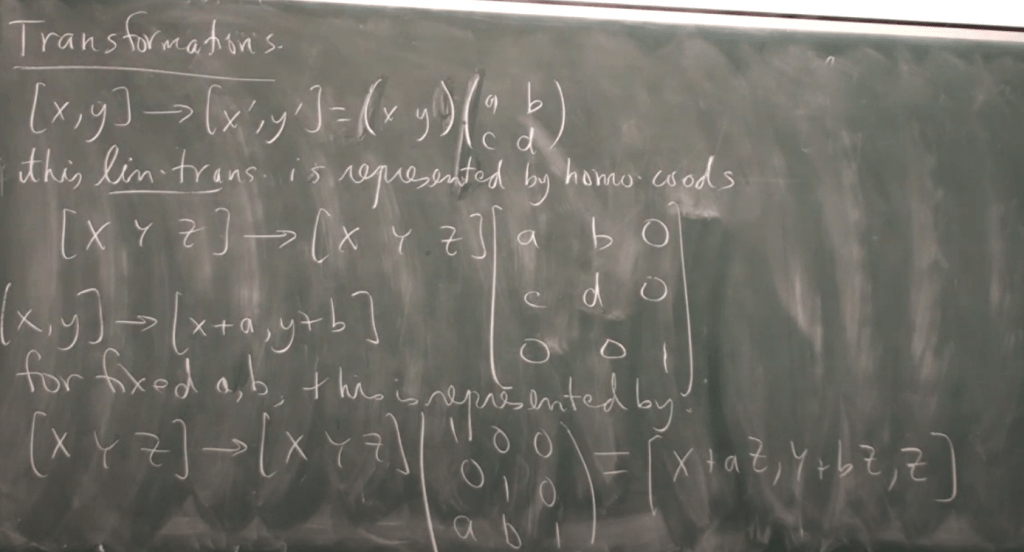 Transformations.
[x,y] → [x',y'] = (x y) (a b
c d)
this lin. trans. is represented by homo. coods
[X Y Z] → [X Y Z] [a b 0
c d 0
0 0 1]
[x,y] → [x+a, y+b]
for fixed a,b, this is represented by:
[X Y Z] → [X Y Z] (1 0 0
0 1 0
a b 1) = [X+aZ, Y+bZ, Z]